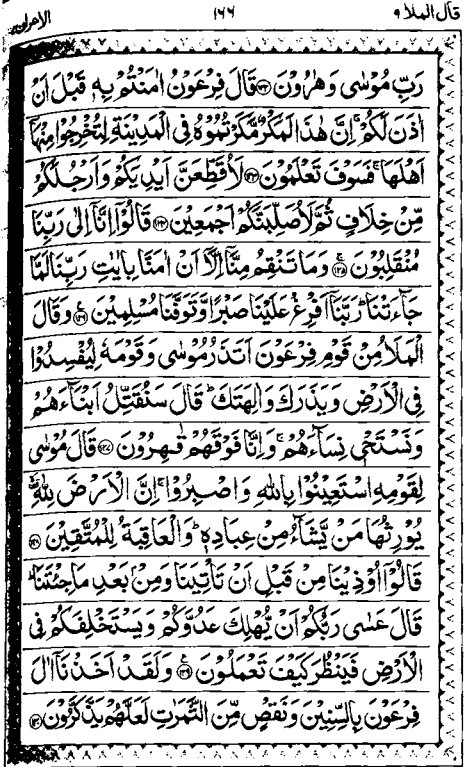 قال الملا ٩ ١٦٦ الاعراف ٧
رَبِّ مُوْسٰى وَهٰرُوْنَ ﴿۱۲۲﴾ قَالَ فِرْعَوْنُ اٰمَنْتُمْ بِهٖ قَبْلَ اَنْ
اٰذَنَ لَكُمْ ۚ اِنَّ هٰذَا لَمَكْرٌ مَّكَرْتُمُوْهُ فِى الْمَدِيْنَةِ لِتُخْرِجُوْا مِنْهَاۤ
اَهْلَهَا ۚ فَسَوْفَ تَعْلَمُوْنَ ﴿۱۲۳﴾ لَاُقَطِّعَنَّ اَيْدِيَكُمْ وَاَرْجُلَكُمْ
مِّنْ خِلَافٍ ثُمَّ لَاُصَلِّبَنَّكُمْ اَجْمَعِيْنَ ﴿۱۲۴﴾ قَالُوْۤا اِنَّاۤ اِلٰى رَبِّنَا
مُنْقَلِبُوْنَ ﴿۱۲۵﴾ وَمَا تَنْقِمُ مِنَّاۤ اِلَّاۤ اَنْ اٰمَنَّا بِاٰيٰتِ رَبِّنَا لَمَّا
جَآءَتْنَا ؕ رَبَّنَاۤ اَفْرِغْ عَلَيْنَا صَبْرًا وَّتَوَفَّنَا مُسْلِمِيْنَ ﴿۱۲۶﴾ وَقَالَ
الْمَلَاُ مِنْ قَوْمِ فِرْعَوْنَ اَتَذَرُ مُوْسٰى وَقَوْمَهٗ لِيُفْسِدُوْا
فِى الْاَرْضِ وَيَذَرَكَ وَاٰلِهَتَكَ ؕ قَالَ سَنُقَتِّلُ اَبْنَآءَهُمْ
وَنَسْتَحْىٖ نِسَآءَهُمْ ۚ وَاِنَّا فَوْقَهُمْ قٰهِرُوْنَ ﴿۱۲۷﴾ قَالَ مُوْسٰى
لِقَوْمِهِ اسْتَعِيْنُوْا بِاللّٰهِ وَاصْبِرُوْا ۚ اِنَّ الْاَرْضَ لِلّٰهِ ۙ
يُوْرِثُهَا مَنْ يَّشَآءُ مِنْ عِبَادِهٖ ؕ وَالْعَاقِبَةُ لِلْمُتَّقِيْنَ ﴿۱۲۸﴾
قَالُوْۤا اُوْذِيْنَا مِنْ قَبْلِ اَنْ تَاْتِيَنَا وَمِنْۢ بَعْدِ مَا جِئْتَنَا ؕ
قَالَ عَسٰى رَبُّكُمْ اَنْ يُّهْلِكَ عَدُوَّكُمْ وَيَسْتَخْلِفَكُمْ فِى
الْاَرْضِ فَيَنْظُرَ كَيْفَ تَعْمَلُوْنَ ﴿۱۲۹﴾ وَلَقَدْ اَخَذْنَاۤ اٰلَ
فِرْعَوْنَ بِالسِّنِيْنَ وَنَقْصٍ مِّنَ الثَّمَرٰتِ لَعَلَّهُمْ يَذَّكَّرُوْنَ ﴿۱۳۰﴾